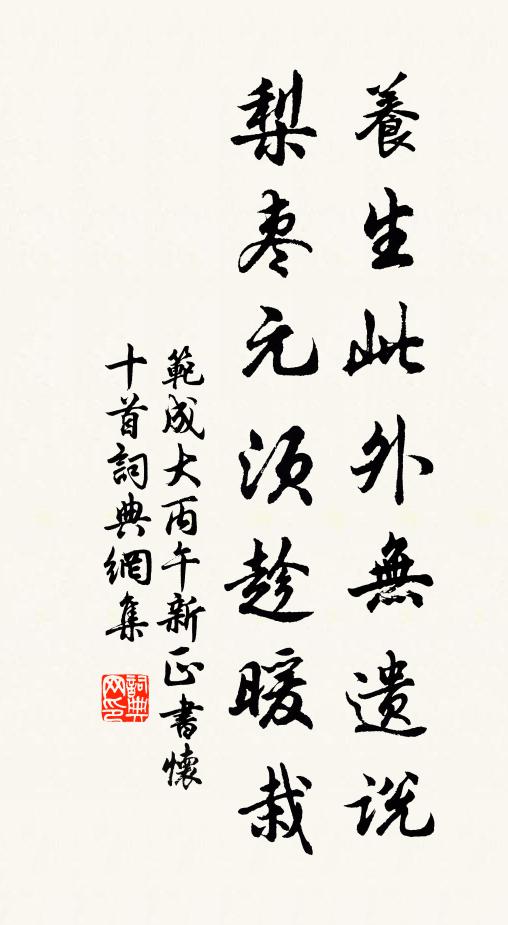 養生此外無遺說
梨枣元須趁暖栽
範成大丙午新正書懷
十首詞典網集
詞典网印